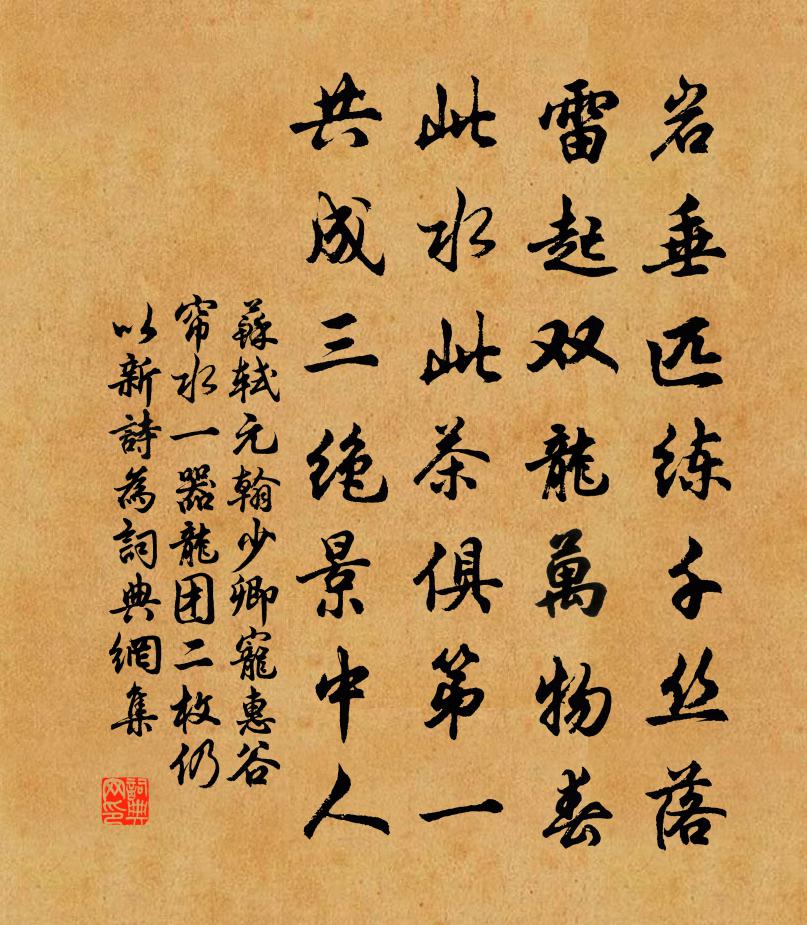 岩垂匹练千丝落
雷起双龍萬物春
此水此茶俱第一
共成三绝景中人
蘇轼元翰少卿寵惠谷
帘水一器龍团二枚仍
以新詩為詞典網集
詞典
网印